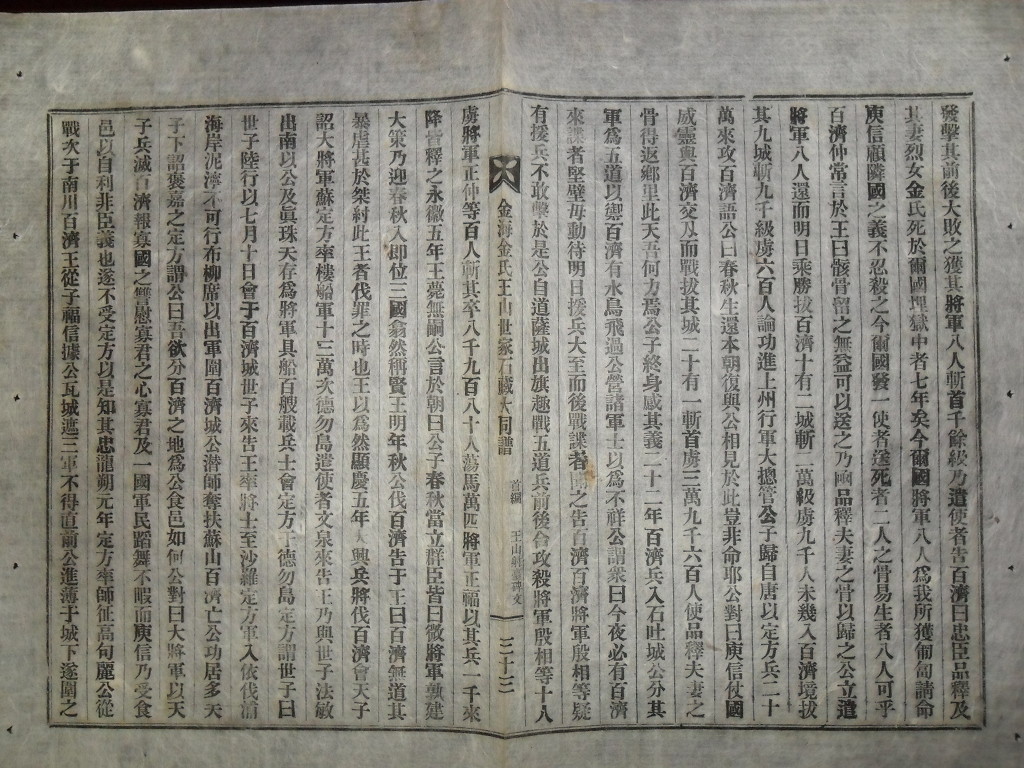 發擊其前後大敗之獲其將軍八人斬首千餘級乃遣使者告百濟曰忠臣品釋及
其妻烈女金氏死於爾國埋獄中者七年矣今爾國將軍八人爲我所獲匍匐請命
庾信顧隣國之義不忍殺之今爾國發一使者送死者二人之骨易生者八人可乎
百濟仲常言於王曰骸骨留之無益可以送之乃凾品釋夫妻之骨以歸之公立遣
將軍八人還而明日乘勝拔百濟十有二城斬二萬級虜九千人未幾入百濟境拔
其九城斬九千級虜六百人論功進上州行軍大摠管公子歸自唐以定方兵二十
萬來攻百濟語公曰春秋生還本朝復與公相見於此豈非命耶公對曰庾信仗國
威靈與百濟交刄而戰拔其城二十有一斬首虜三萬九千六百人使品釋夫妻之
骨得返鄉里此天吾何力焉公子終身感其義二十二年百濟兵入石吐城公分其
軍爲五道以禦百濟有水鳥飛過公營諸軍士以爲不祥公謂衆曰今夜必有百濟
來諜者堅壁毋動待明日援兵大至而後戰諜者聞之告百濟百濟將軍殷相等疑
有援兵不敢擊於是公自道薩城出旗趣戰五道兵前後合攻殺將軍殷相等十八
金海金氏王山世家石藏大同譜
首綱 王山射臺碑文
三十三
虜將軍正仲等百人斬其卒八千九百八十人蕩馬萬匹將軍正福以其兵一千來
降皆釋之永徽五年王薨無嗣公言於朝曰公子春秋當立群臣皆曰微將軍孰建
大策乃迎春秋入卽位三國翕然稱賢王明年秋公伐百濟告于王曰百濟無道其
暴虐甚於桀紂此王者伐罪之時也王以爲然顯慶五年大興兵將伐百濟會天子
詔大將軍蘇定方率樓船軍十三萬次德勿島遣使者文泉來告王乃與世子法敏
出南以公及眞珠天存爲將軍具船百艘載兵士會定方于德勿島定方謂世子曰
世子陸行以七月十日會于百濟城世子來告王率將士至沙羅定方軍入依伐浦
海岸泥濘不可行布柳席以出軍圍百濟城公潜師奪扶蘇山百濟亡公功居多天
子下詔褒嘉之定方謂公曰吾欲分百濟之地爲公食邑如何公對曰大將軍以天
子兵滅百濟報寡國之讐慰寡君之心寡君及一國軍民蹈舞不暇而庾信乃受食
邑以自利非臣義也遂不受定方以是知其忠龍朔元年定方率師征高句麗公從
戰次于南川百濟王從子福信據公瓦城遮三軍不得直前公進薄于城下遂圍之